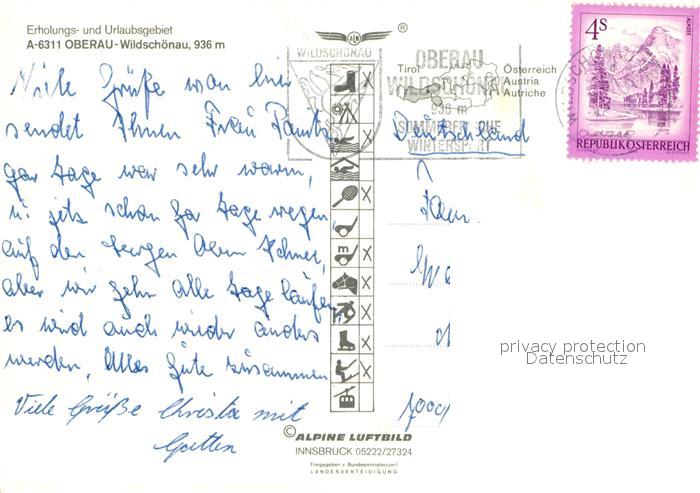 Erholungs- und Urlaubsgebiet
A-6311 OBERAU-Wildschönau, 936 m
®
WILDSCHÖNAU
OBERAU
WILDSCHÖNAU
936 m
SOMMERFRISCHE
WINTERSPORT
Tirol
Österreich
Austria
Autriche
4s
ALMSEE
REPUBLIK ÖSTERREICH
Viele Grüße von hier
sendet Ihnen Frau
Deutschland
gar tage war sehr warm,
u. jetz schon tage regen,
auf den bergen oben Schnee,
aber wir gehn alle tage laufen,
es wird auch wieder anders
werden, Alles Gute zusammen
Viele Grüße Christa mit
Gatten
m
privacy protection
Datenschutz
7000
© ALPINE LUFTBILD
INNSBRUCK 05222/27324
Freigegeben v. Bundesministerium f.
LANDESVERTEIDIGUNG